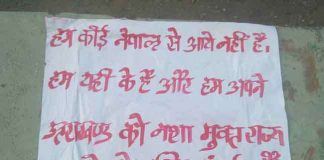 हम कोई नेपाल से आये नहीं है,
हम यही के है और हम अपने
उत्तराखण्ड को नशा मुक्त राज्य